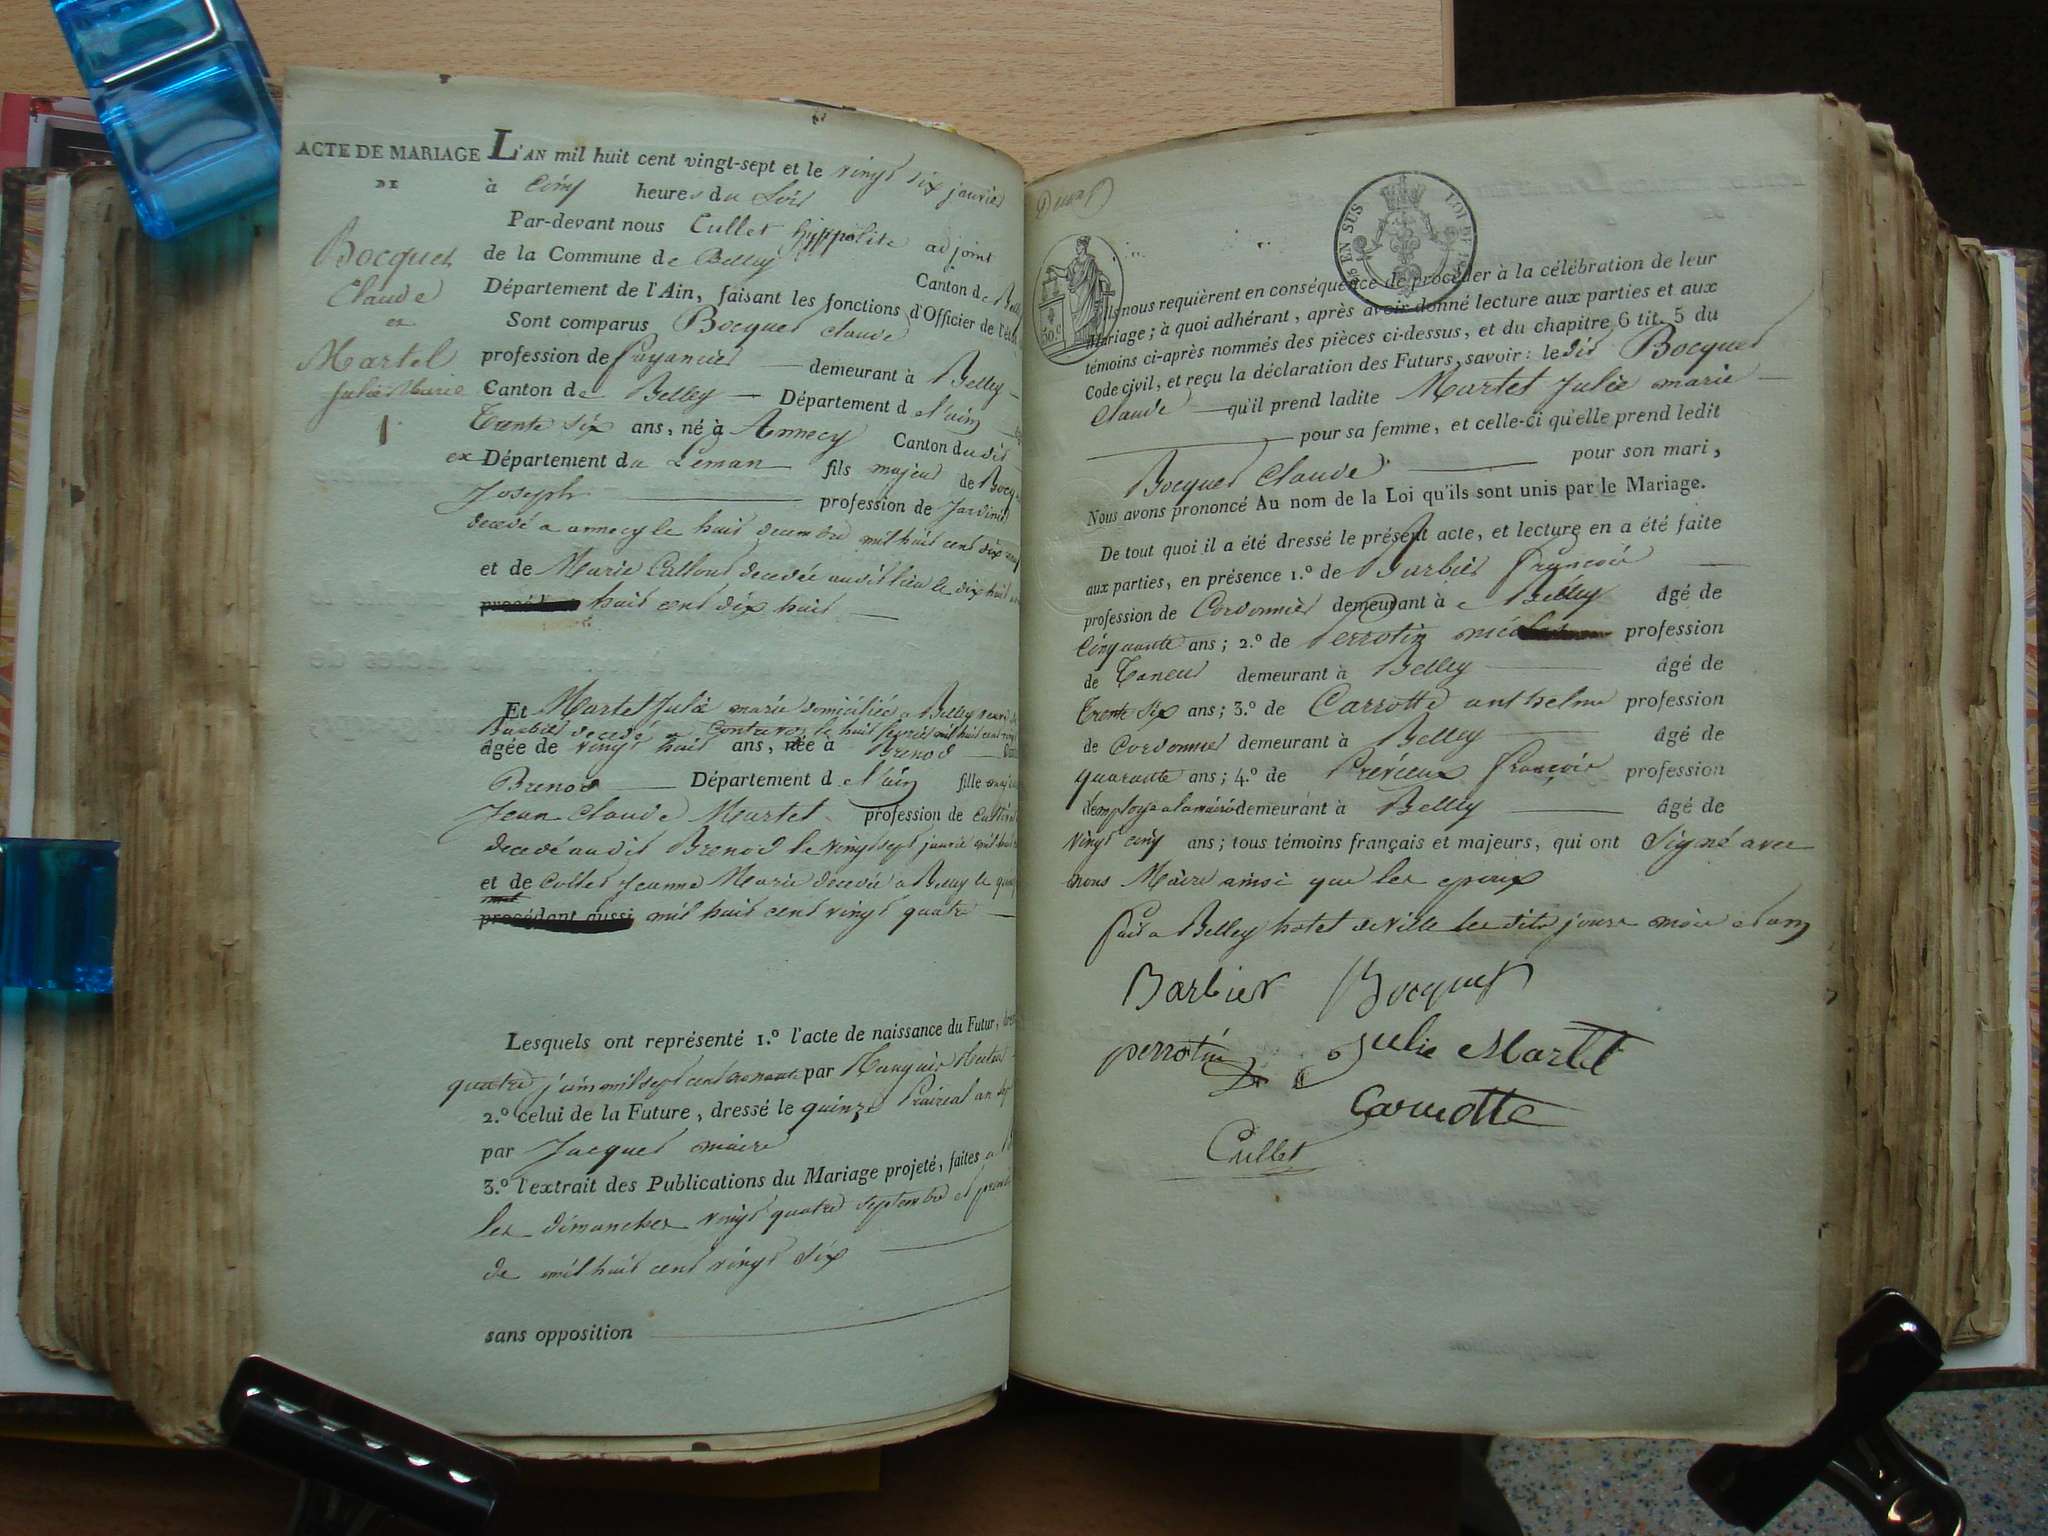 ACTE DE MARIAGE
DE
Bocquet
Claude
et
Martel
Julie Marie
1
L'AN mil huit cent vingt-sept et le vingt six janvier
à cinq heures du soir
Par-devant nous Cullet hyppolite adjoint
de la Commune de Belley Canton de Belley
Département de l'Ain, faisant les fonctions d'Officier de l'état
Sont comparus Bocquet Claude
profession de demeurant à Belley
Canton de Belley Département de l'ain
Trente six ans, né à Annecy Canton dudit
et Département du Leman fils majeur de Bocq
Joseph profession de Jardinier
decedé a annecy le huit decembre mil huit cent dix
et de Marie decedée audit lieu le dix huit
huit cent dix huit
Et Martel Julie marie domiciliée a Belley veuve de
Barbier decedé a le huit mil huit cent
âgée de vingt huit ans, née à Brenod
Brenod Département de l'ain fille
Jean Claude Martel profession de
decedé audit Brenod le vingt sept janvier mil huit
et de Collet Jeanne Marie decedée a Belley le
procédant aussi mil huit cent vingt quatre
Lesquels ont représenté 1.º l'acte de naissance du Futur,
quatre juin mil sept cent nonante par
2.º celui de la Future, dressé le quinze Prairial an sept
par Jacquet maire
3.º l'extrait des Publications du Mariage projeté, faites a
les dimanches vingt quatre septembre et premier
de mil huit cent vingt six
sans opposition
EN SUS
LOI DE
50 c
Ils nous requièrent en conséquence de procéder à la célébration de leur
Mariage; à quoi adhérant, après avoir donné lecture aux parties et aux
témoins ci-après nommés des pièces ci-dessus, et du chapitre 6 tit. 5 du
Code civil, et reçu la déclaration des Futurs, savoir: ledit Bocquet
Claude qu'il prend ladite Martel Julie marie
pour sa femme, et celle-ci qu'elle prend ledit
Bocquet Claude pour son mari,
Nous avons prononcé Au nom de la Loi qu'ils sont unis par le Mariage.
De tout quoi il a été dressé le présent acte, et lecture en a été faite
aux parties, en présence 1.º de Barbier François
profession de Cordonnier demeurant à Belley âgé de
cinquante ans; 2.º de Perrotin profession
de Taneur demeurant à Belley âgé de
Trente six ans; 3.º de Carrotte anthelme profession
de Cordonnier demeurant à Belley âgé de
quarante ans; 4.º de Prévieux François profession
d'employé a la mairie demeurant à Belley âgé de
vingt cinq ans; tous témoins français et majeurs, qui ont Signé avec
nous Maire ainsi que les epoux
fait a Belley hotel de Ville les dits jours mois et an
Barbier Bocquet
perrotin Julie Martel
Carrotte
Cullet